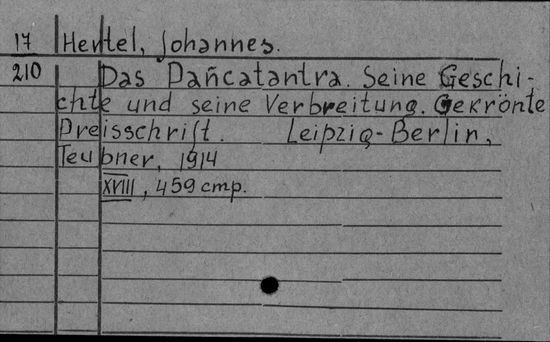 17 Hertel, Johannes.
210 Das Pañcatantra. Seine Geschi-
chte und seine Verbreitung. Gekrönte
Preisschrift. Leipzig-Berlin,
Teubner, 1914
XVIII, 459 стр.